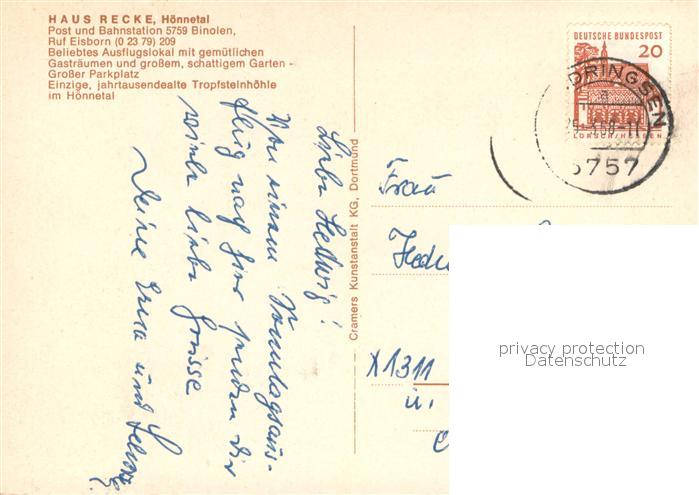 HAUS RECKE, Hönnetal
Post und Bahnstation 5759 Binolen,
Ruf Eisborn (0 23 79) 209
Beliebtes Ausflugslokal mit gemütlichen
Gasträumen und großem, schattigem Garten -
Großer Parkplatz
Einzige, jahrtausendealte Tropfsteinhöhle
im Hönnetal
Liebe Hedwig!
Von einem Sonntagsaus-
flug nach hier senden dir
viele liebe Grüsse
Deine Erna und
Cramers Kunstanstalt KG, Dortmund
DEUTSCHE BUNDESPOST
20
LORSCH/HESSEN
DRINGSEN
5757
Frau
X1311
u.
privacy protection
Datenschutz